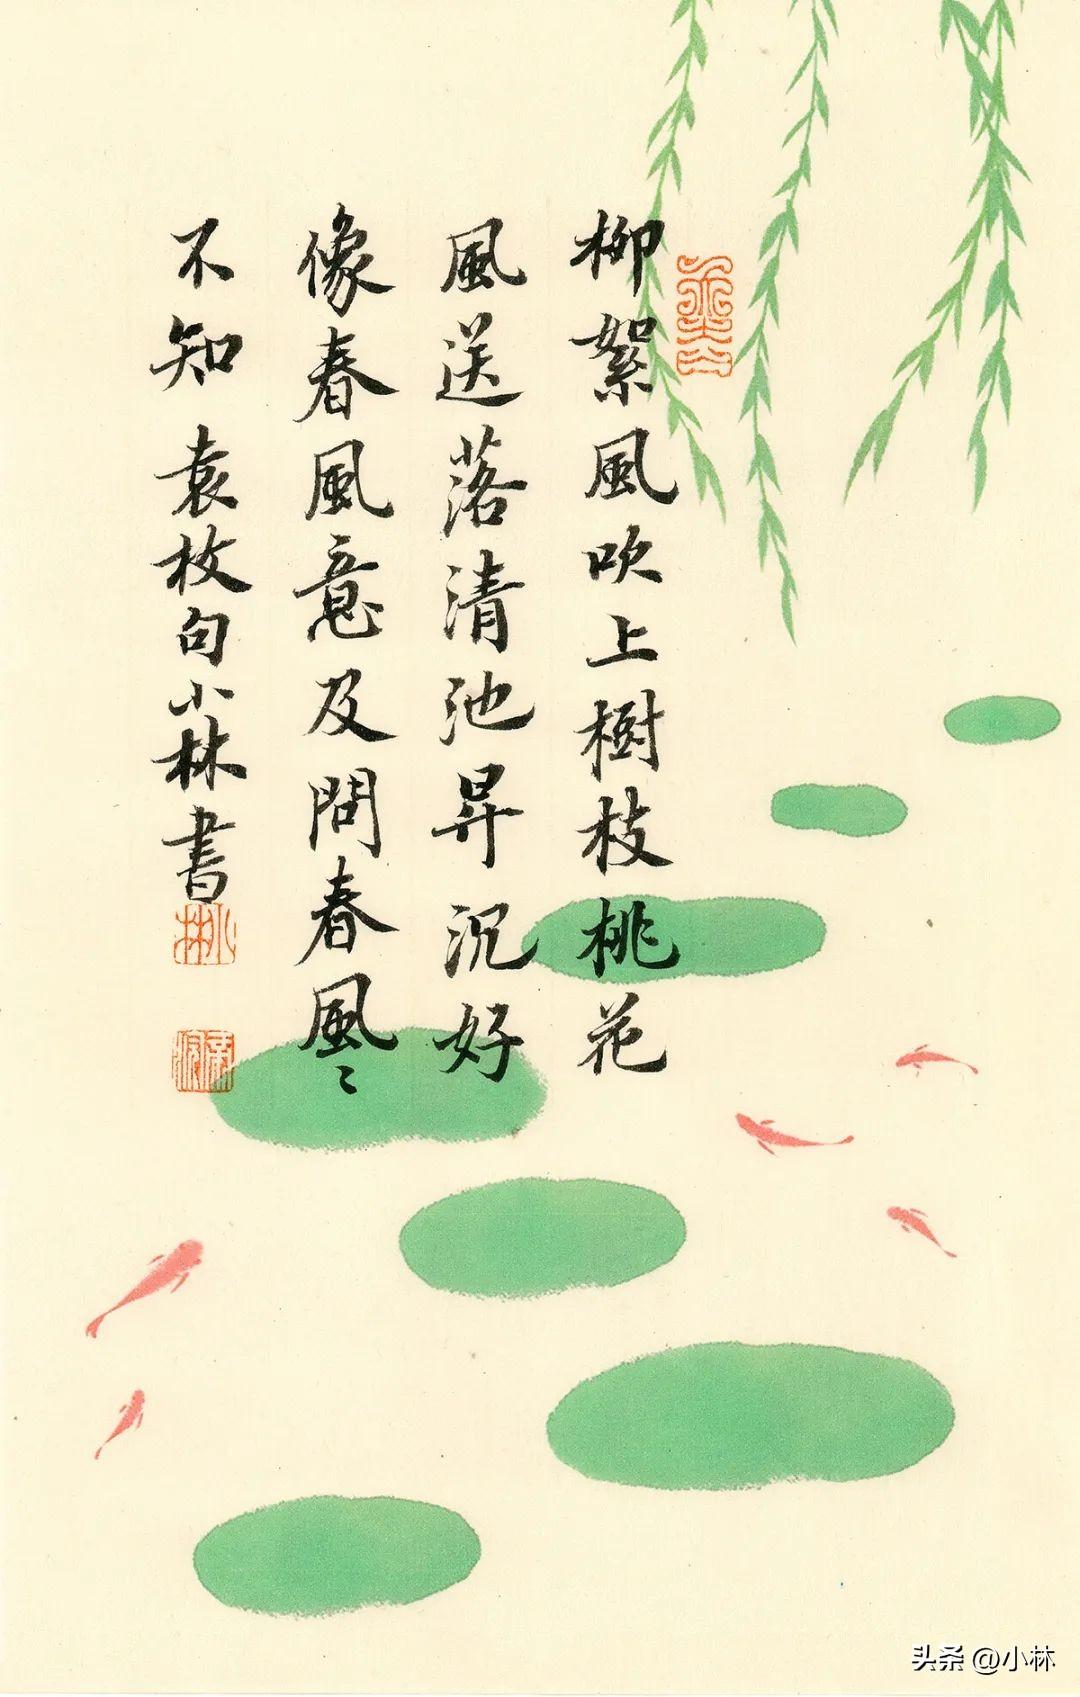 柳絮風吹上樹枝桃花
風送落清池昇沉好
像春風意及問春風〻
不知 袁枚句小林書
小林
头条 @小林